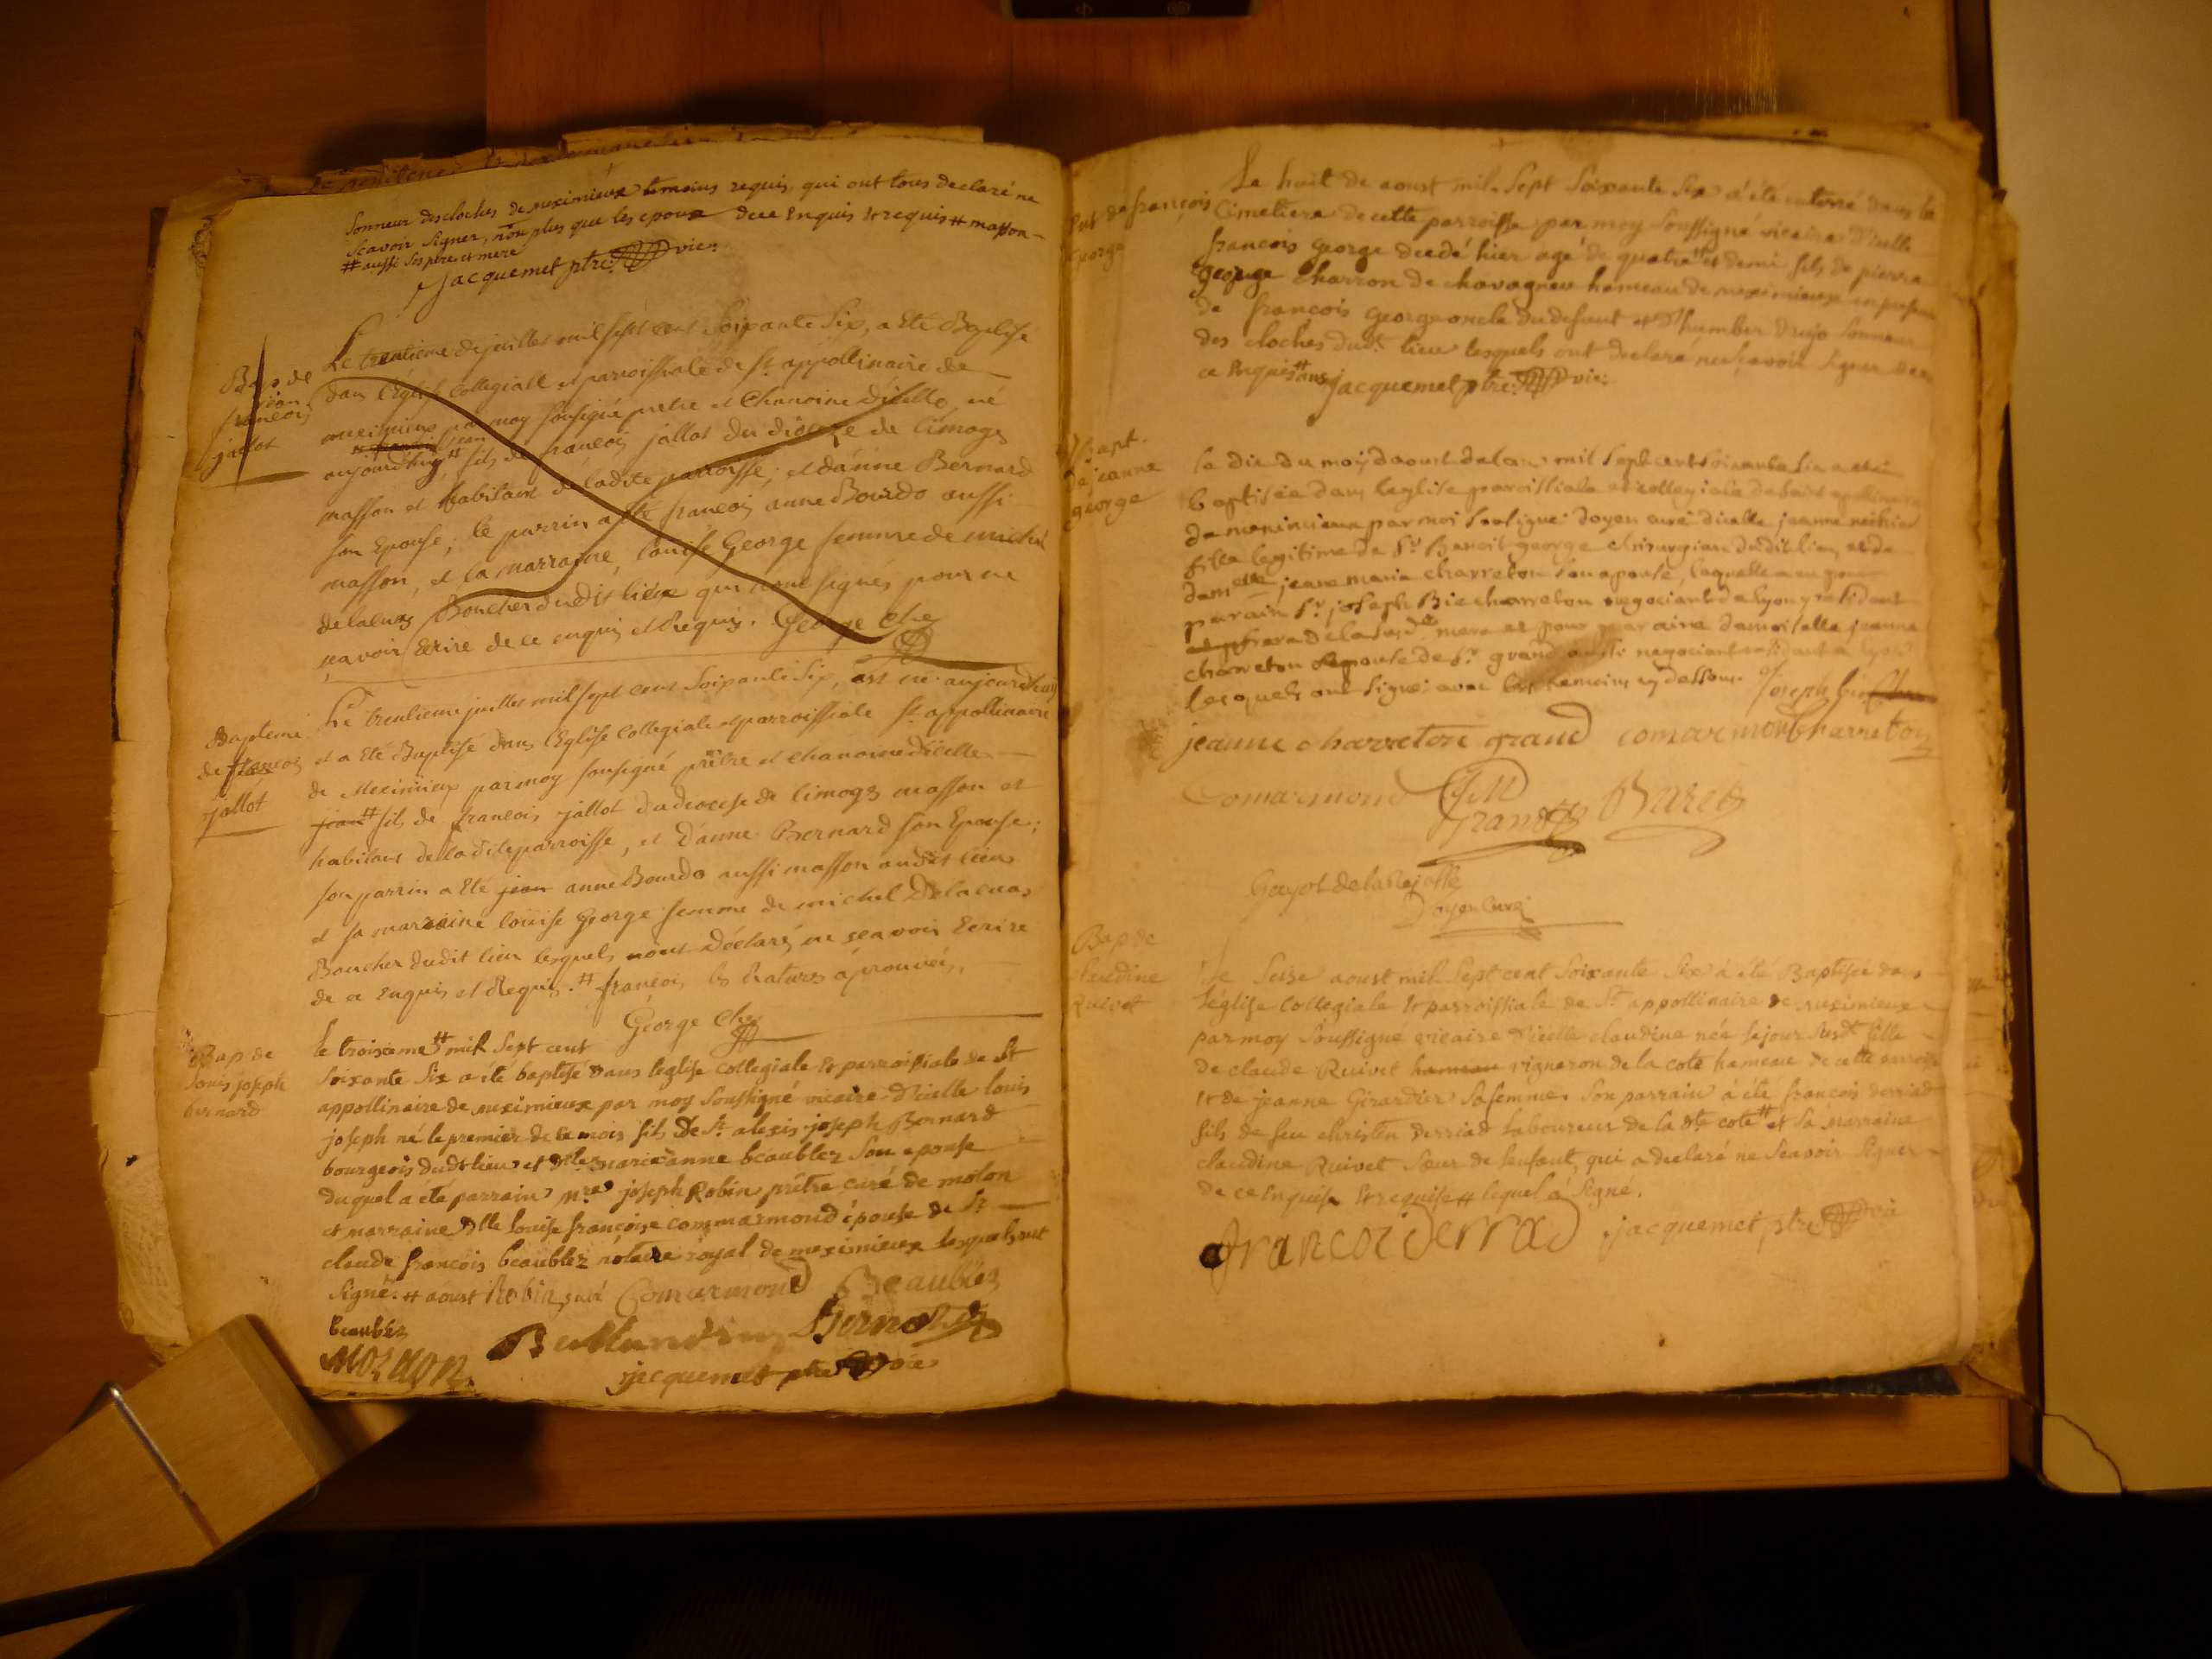 sonneur des cloches de meximieux temoins requis, qui ont tous declaré ne
scavoir signer, non plus que les epoux dece enquis et requis # masson
# aussi ses pere et mere
Jacquemet ptre vic:
Bap. de
jean
francois
jallot
Le trentieme de juillet mil sept cent soixante six, a Eté Baptisé
dans l'Eglise Collegiale et parroissiale de st appollinaire de
meximieux par moy sousigné pretre et Chanoine d'icelle, né
aujourdhuy # fils de francois jallot du diocese de limoges
masson et habitant de ladite parroisse, et d'anne Bernard
son Epouse; le parrin a Eté francois anne Bourdo aussi
masson, et la marraine, louise George femme de michel
delacuas Boucher dudit lieu qui n'ont signés pour ne
scavoir Ecrire de ce enquis et Requis. George Che
Bapteme
de francois
jallot
Le trentieme juillet mil sept cent soixante six, est né aujourdhuy
et a Eté Baptisé dans l'Eglise Collegiale et parroissiale st appollinaire
de Meximieux par moy sousigné prêtre et chanoine d'icelle
jean # fils de francois jallot du diocese de limoges masson et
habitant de la dite parroisse, et d'anne Bernard son Epouse;
son parrin a Eté jean anne Bourdo aussi masson audit lieu
et sa marraine louise George femme de michel Delacuas
Boucher dudit lieu lesquels n'ont Déclaré ne scavoir Ecrire
de ce Enquis et Requis. # francois les Ratures aprouvées.
George Che
Bap de
louis joseph
bernard
le troisieme # mil sept cent
soixante six a été baptisé dans leglise collegiale et parroissiale de st
appollinaire de meximieux par moy soussigné vicaire d'icelle louis
joseph né le premier de ce mois fils de sr. alexis joseph Bernard
bourgeois dudt lieu et dlle marie anne beaublez son epouse
duquel a été parrain mre joseph Robin prêtre curé de molon
et marraine dlle louise françoise commarmond épouse de sr
claude françois beaublez notaire royal de meximieux lesquels ont
signé. # aoust Robin curé Comarmond Beaublez
beaublez
Bernard
jacquemet ptre vic
Ent de françois
George
Le huit de aoust mil sept soixante six a été enterré dans le
Cimetiere de cette parroisse par moy soussigné vicaire d'icelle
françois George decedé hier agé de quatre # et demi fils de pierre
George Charron de chavagneu hameau de meximieux en presence
de françois George oncle du defunt et d'humber drujo sonneur
des cloches dudt. lieu lesquels ont declaré ne scavoir signer de
ce Enquis # ans jacquemet ptre vic:
Bapt.
de jeanne
george
le dix du moy daoust de lan mil sept cent soixante six a eté
baptisée dans leglise paroissiale et collegiale de saint apollinaire
de meximieux par moi soussigné doyen curé d'icelle jeanne
fille legitime de sr Benoit george chirurgien dudit lieu et de
damelle jeane marie charreton son epouse, laquelle a eu pour
parain sr. joseph Bie charreton negociant de lyon y residant
frere de la susdte mere et pour maraine damoiselle jeanne
charreton epouse de sr. grand aussi negociant residant a lyon
lesquels ont signé avec les temoins cy dessous. Joseph
jeanne charreton grand comarmont charreton
Comarmond
Grand
Goyot de la
Doyen Curé
Bap de
claudine
Ruivet
Le seise aoust mil sept cent soixante six à été Baptisée dans
l'église collegiale et parroissiale de St appollinaire de meximieux
par moy soussigné vicaire d'icelle claudine née le jour susdt fille
de claude Ruivet hameau vigneron de la cote hameau de cette parroisse
et de jeanne Girardier sa femme. son parrain à été françois derriad
fils de feu christin derriad laboureur de la dte cote # et sa marraine
claudine Ruivet sœur de lenfant, qui a declaré ne scavoir signer
de ce enquise et requise # lequel a signé.
francoi derrad jacquemet ptre vic